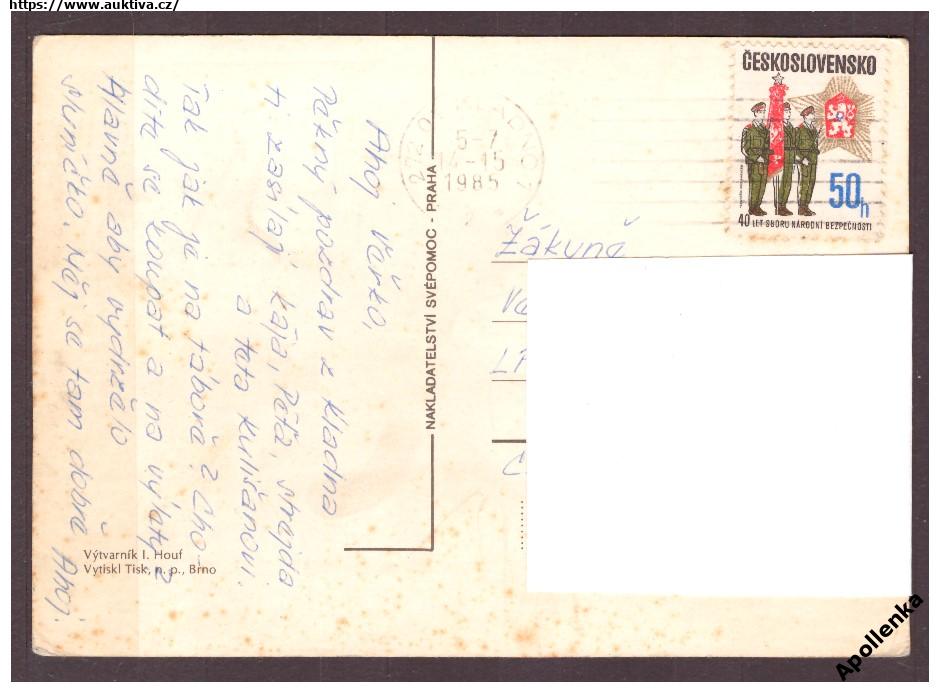 https://www.auktiva.cz/
Ahoj Verko,
Pěkný pozdrav z Kladna
ti zasílají Kája, Péťa, strejda
a teta Kulišanovi.
Tak jak je na táboře? Cho-
díte se koupat a na výlety?
Hlavně aby vydrželo
sluníčko. Měj se tam dobře Ahoj.
Výtvarník I. Houf
Vytiskl Tisk, n. p., Brno
NAKLADATELSTVÍ SVÉPOMOC - PRAHA
5-7
14-15
1985
ČESKOSLOVENSKO
50h
40 LET SBORU NÁRODNÍ BEZPEČNOSTI
Žákyně
Apollenka